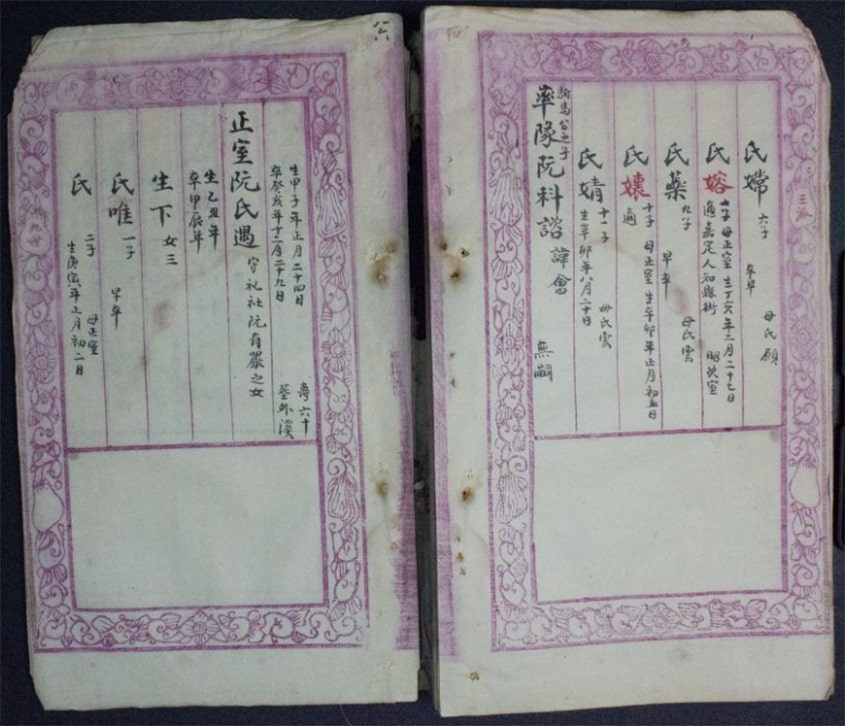 三派
氏嫦 六子 早卒 母氏願
氏嫆 七子 母正室 生丁亥年二月二十七日
適嘉定人知縣衙 昭武室
氏藥 九子 早卒 母氏雲
氏孃 十子 母正室 生辛卯年正月初五日
適
氏婧 十一子 母氏雲
生辛卯年八月二十日
駙馬公之子
率隊阮科諮 諱會 無嗣
生甲子年正月二十四日 壽六十
卒癸亥年十二月二十九日 葬外溪
正室阮氏遇 守礼社阮有嚴之女
生乙丑年
卒甲辰年
生下 女三
氏唯 一子 早卒
氏 二子 母正室
生庚寅年正月初二日
九世